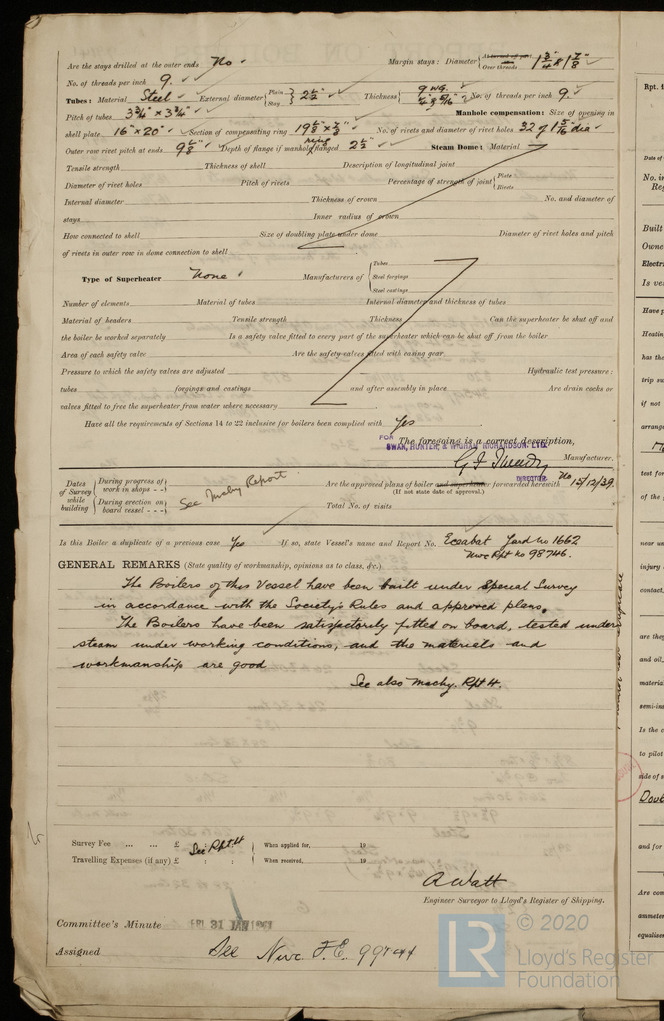 Are the stays drilled at the outer ends No. Margin stays: Diameter { At turned off part, or Over threads 1 3/4" & 1 7/8"
No. of threads per inch 9.
Tubes: Material Steel External diameter { Plain Stay } 2 1/2" Thickness { 9 WG. 1/4" & 5/16" No. of threads per inch 9.
Pitch of tubes 3 3/4" × 3 3/4" Manhole compensation: Size of opening in
shell plate 16" × 20" Section of compensating ring No. of rivets and diameter of rivet holes 32 of 1 5/16" dia
Outer row rivet pitch at ends Depth of flange if manhole flanged Steam Dome: Material
Tensile strength Thickness of shell Description of longitudinal joint
Diameter of rivet holes Pitch of rivets Percentage of strength of joint { Plate Rivets
Internal diameter Thickness of crown No. and diameter of
stays Inner radius of crown
How connected to shell Size of doubling plate under dome Diameter of rivet holes and pitch
of rivets in outer row in dome connection to shell
Type of Superheater None. Manufacturers of { Tubes Steel forgings Steel castings
Number of elements Material of tubes Internal diameter and thickness of tubes
Material of headers Tensile strength Thickness Can the superheater be shut off and
the boiler be worked separately Is a safety valve fitted to every part of the superheater which can be shut off from the boiler
Area of each safety valve Are the safety valves fitted with easing gear
Pressure to which the safety valves are adjusted Hydraulic test pressure:
tubes forgings and castings and after assembly in place Are drain cocks or
valves fitted to free the superheater from water where necessary
Have all the requirements of Sections 14 to 22 inclusive for boilers been complied with Yes
The foregoing is a correct description,
FOR SWAN, HUNTER, & WIGHAM RICHARDSON, LTD.
G F Tweedy Manufacturer.
DIRECTOR.
Dates of Survey while building { During progress of work in shops - - During erection on board vessel - - - } See Machy Report
Are the approved plans of boiler and superheater forwarded herewith No 15/12/39.
(If not state date of approval.)
Total No. of visits
Is this Boiler a duplicate of a previous case Yes If so, state Vessel's name and Report No. Eceabat Yard No 1662
Nwc Rpt No 98746.
GENERAL REMARKS (State quality of workmanship, opinions as to class, &c.)
The Boilers of this Vessel have been built under Special Survey
in accordance with the Society's Rules and approved plans.
The Boilers have been satisfactorily fitted on board, tested under
steam under working conditions, and the materials and
workmanship are good
See also Machy. Rpt 4.
Survey Fee ... ... £ See Rpt 4 When applied for, 19
Travelling Expenses (if any) £ : : When received, 19
A Watt
Engineer Surveyor to Lloyd's Register of Shipping.
Committee's Minute FRI. 31 JAN 1941
Assigned See Nwc. F.E. 99744
© 2020
LR Lloyd's Register
Foundation
Rpt.
Date of
No. in
Reg
Built
Owne
Electri
Is ves
Have p
Heatin
has the
trip su
if not
arrang
test for
of the
near un
injury
contact,
are they
and oil,
materia
semi-ins
Is the c
to pilot
side of s
and for
Are con
ammeter
equalise